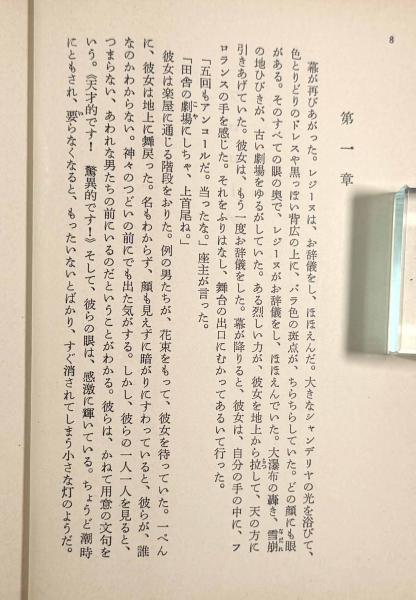 8
第一章
幕が再びあがった。レジーヌは、お辞儀をし、ほほえんだ。大きなシャンデリヤの光を浴びて、
色とりどりのドレスや黒っぽい背広の上に、バラ色の斑点が、ちらちらしていた。どの顔にも眼
がある。そのすべての眼の奥で、レジーヌがお辞儀をし、ほほえんでいた。大瀑布の轟き、雪崩
の地ひびきが、古い劇場をゆるがしていた。ある烈しい力が、彼女を地上から拉して、天の方に
引きあげていた。彼女は、もう一度お辞儀をした。幕が降りると、彼女は、自分の手の中に、フ
ロランスの手を感じた。それをふりはなし、舞台の出口にむかってあるいて行った。
「五回もアンコールだ。当ったな。」座主が言った。
「田舎の劇場にしちゃ、上首尾ね。」
彼女は楽屋に通じる階段をおりた。例の男たちが、花束をもって、彼女を待っていた。一ぺん
に、彼女は地上に舞戻った。名もわからず、顔も見えずに暗がりにすわっていると、彼らが、誰
なのかわからない。神々のつどいの前にでも出た気がする。しかし、彼らの一人一人を見ると、
つまらない、あわれな男たちの前にいるのだということがわかる。彼らは、かねて用意の文句を
いう。《天才的です！　驚異的です！》そして、彼らの眼は、感激に輝いている。ちょうど潮時
にともされ、要らなくなると、もったいないとばかり、すぐ消されてしまう小さな灯のようだ。